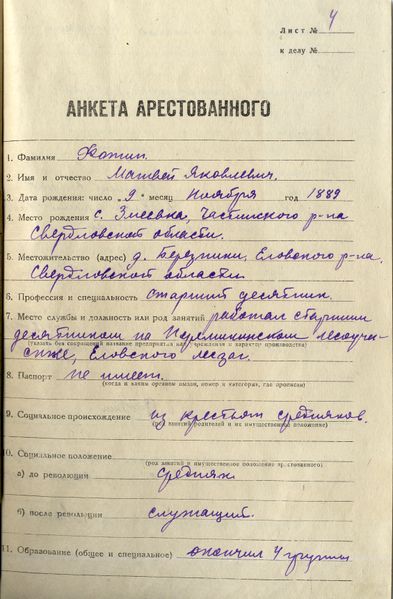 Лист № 4
к делу №
АНКЕТА АРЕСТОВАННОГО
1. Фамилия Хотин.
2. Имя и отчество Матвей Яковлевич.
3. Дата рождения: число „9“ месяц Ноября год 1889
4. Место рождения с. Змеевка, Частинского р-на
Свердловской области.
5. Местожительство (адрес) д. Березники, Еловского р-на,
Свердловской области.
6. Профессия и специальность старший десятник.
7. Место службы и должность или род занятий работал старшим
десятником на лесоуча-
(указать без сокращений название предприятия или учреждения и характер производства)
стке, Еловского
8. Паспорт не имеет.
(когда и каким органом выдан, номер и категория, где прописан)
9. Социальное происхождение из крестьян середняков.
(род занятий родителей и их имущественное положение)
10. Социальное положение
(род занятий и имущественное положение арестованного)
а) до революции середняк.
б) после революции служащий.
11. Образование (общее и специальное) окончил 4 группы